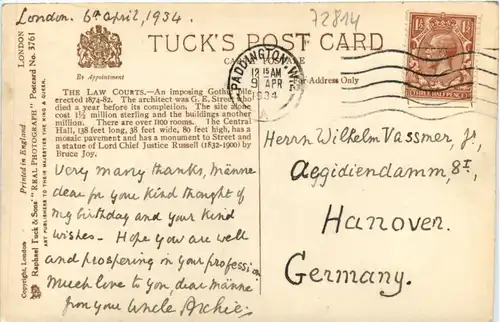 London. 6th April, 1934.
72814
TUCK'S POST CARD
By Appointment
CARTE POSTALE
For Address Only
PADDINGTON. W.2.
12 15 AM
9 APR
1934
THREE HALFPENCE
LONDON
Postcard No. 3761
Printed in England
Raphael Tuck & Sons' "REAL PHOTOGRAPH"
ART PUBLISHERS TO THEIR MAJESTIES THE KING & QUEEN.
Copyright, London
THE LAW COURTS.—An imposing Gothic pile
erected 1874-82. The architect was G. E. Street who
died a year before its completion. The site alone
cost 1½ million sterling and the buildings another
million. There are over 1100 rooms. The Central
Hall, 138 feet long, 38 feet wide, 80 feet high, has a
mosaic pavement and has a monument to Street and
a statue of Lord Chief Justice Russell (1832-1900) by
Bruce Joy.
Very many thanks, männe
dear for your kind thought of
my birthday and your kind
wishes. Hope you are well
and prospering in your profession
Much love to you, dear männe
from your Uncle Archie.
Herrn Wilhelm Vassmer, jr,
Aegidiendamm, 8I,
Hanover.
Germany.